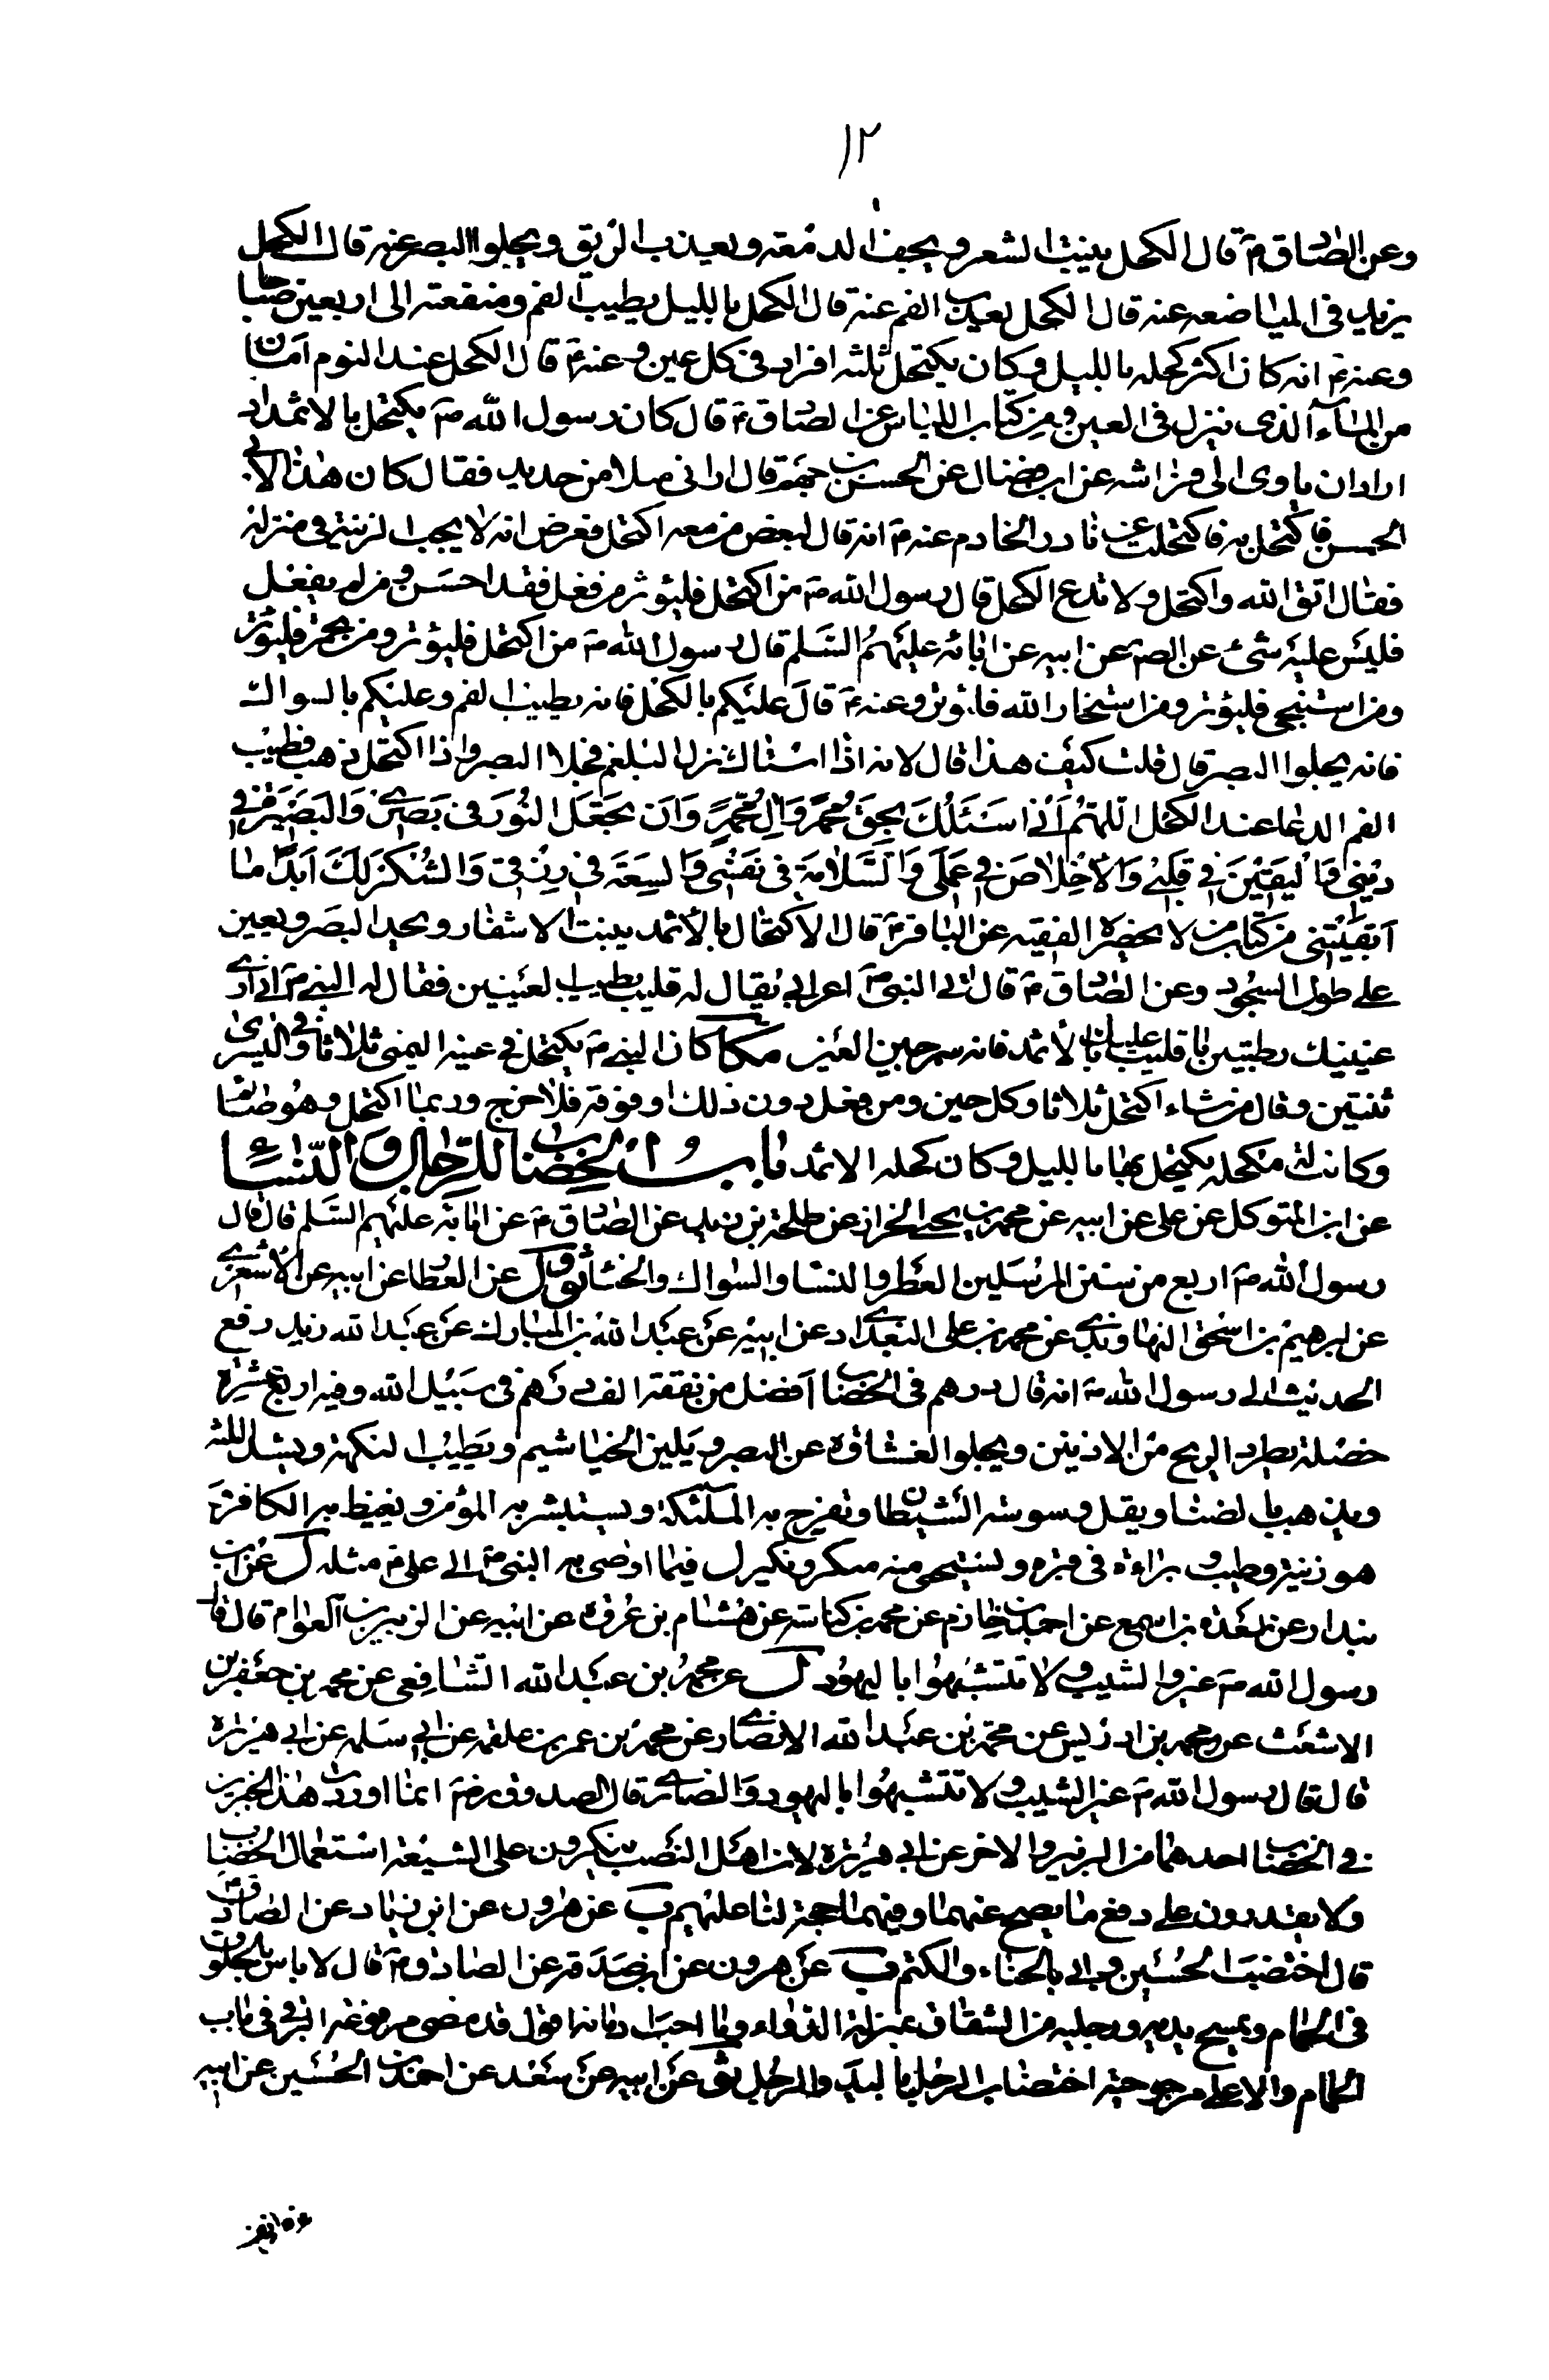 ١٢
وعن الصادق ع قال الكحل ينبت الشعر ويجفف الدمعة ويعذب الريق ويجلو البصر عنه قال الكحل
يزيد في المباضعة عنه قال الكحل يعذب الفم عنه قال الكحل بالليل يطيب الفم ومنفعته الى اربعين صباحا
وعنه ع انه كان اكثر كحله بالليل وكان يكتحل ثلثة افراد في كل عين وعنه ع قال الكحل عند النوم امان
من الماء الذي ينزل في العين ومن كتاب اللباس عن الصادق ع قال كان رسول الله ص يكتحل بالاثمد اذا
اراد ان ياوى الى فراشه عن ابن فضال عن الحسن بن جهم قال اراني ميلا من حديد فقال كان هذا لابي
الحسن فاكتحل به فاكتحلت عن نادر الخادم عنه ع انه قال لبعض من معه اكتحل فعرض انه لا يحب الزينة في منزله
فقال اتق الله واكتحل ولا تدع الكحل قال رسول الله ص من اكتحل فليوثر من فعل فقد احسن ومن لم يفعل
فليس عليه شئ عن الصم عن ابيه عن ابائه عليهم السلم قال رسول الله ص من اكتحل فليوتر ومن تجمر فليوتر
ومن استنجى فليوتر ومن استخار الله فليوتر وعنه ع قال عليكم بالكحل فانه يطيب الفم وعليكم بالسواك
فانه يجلوا البصر قال قلت كيف هذا قال لانه اذا استاك نزل البلغم فجلا البصر واذا اكتحل ذهب فطيب
الفم الدعا عند الكحل اللهم اني اسئلك بحق محمد وال محمد وان تجعل النور في بصري والبصيرة في
ديني واليقين في قلبي والاخلاص في عملي والسلامة في نفسي والسعة في رزقي والشكر لك ابدا ما
ابقيتني من كتاب من لا يحضره الفقيه عن الباقر ع قال الاكتحال بالاثمد ينبت الاشفار ويحد البصر ويعين
على طول السجود وعن الصادق ع قال اتى النبي ص اعرابي يقال له قليب رطب العينين فقال له النبي ص اني ارى
عينيك رطبتين يا قليب عليك بالاثمد فانه سرجين العين مكا كان النبي ص يكتحل في عينه اليمنى ثلاثا وفي اليسرى
ثنتين وقال من شاء اكتحل ثلاثا وكل حين ومن فعل دون ذلك او فوقه فلا حرج وربما اكتحل وهو صائم
وكانت له مكحلة يكتحل بها بالليل وكان كحله الاثمد باب الخضاب للرجال والنساء
عن ابن المتوكل عن علي عن ابيه عن محمد بن يحيى الخزاز عن طلحة بن زيد عن الصادق ع عن ابائه عليهم السلم قال قال
رسول الله ص اربع من سنن المرسلين العطر والنسا والسواك والحنا ثو ل عن العطا عن ابيه عن الاشعري
عن ابرهيم بن اسحق النهاوندي عن محمد بن علي البغدادي عن ابيه عن عبد الله بن المبارك عن عبد الله زيد رفع
الحديث الى رسول الله ص انه قال درهم في الخضاب افضل من نفقة الف درهم في سبيل الله وفيه اربع عشرة
خصلة يطرد الريح من الاذنين ويجلو الغشاوة عن البصر ويلين الخياشيم ويطيب النكهة ويشد اللثة
ويذهب بالضنا ويقل وسوسة الشيطان وتفرح به الملئكة ويستبشر به المؤمن ويغيظ به الكافر و
هو زينة وطيب وبراءة في قبره ويستحيي منه منكر ونكير ل فيما اوصى به النبي ص الى علي ع مثله ل عن ابن
بندار عن سعدة بن اسمع عن احمد بن خازم عن محمد بن كناسة عن هشام بن عروة عن ابيه عن الزبير بن العوام قال قال
رسول الله ص غيروا الشيب ولا تتشبهوا باليهود ل عن محمد بن عبد الله الشافعي عن محمد بن جعفر بن
الاشعث عن محمد بن ادريس عن محمد بن عبد الله الانصاري عن محمد بن عمر بن علقمة عن ابي سلمة عن ابي هريرة
قال قال رسول الله ص غيروا الشيب ولا تتشبهوا باليهود والنصارى قال الصدوق رض انما اوردت هذا الخبرين
في الخضاب احدهما من الزبير والاخر عن ابي هريرة لان اهل النصب ينكرون على الشيعة استعمال الخضاب
ولا يقدرون على دفع ما يصح عنهما وفيهما حجة لنا عليهم ب عن هرون عن ابن زياد عن الصادق ع
قال اختضب الحسين وابي بالحناء والكتم ب عن هرون عن ابن صدقة عن الصادق ع قال لا باس بالخلوق
في الحمام ويمسح يديه ورجليه من الشقاق بمنزلة الدواء وما احب ادمانه اقول قد مضى مرفوعة البرقي في باب
الحمام والا على مرجوحية اختضاب الرجل باليد والرجل ثو عن ابيه عن سعد عن احمد بن الحسين عن ابيه